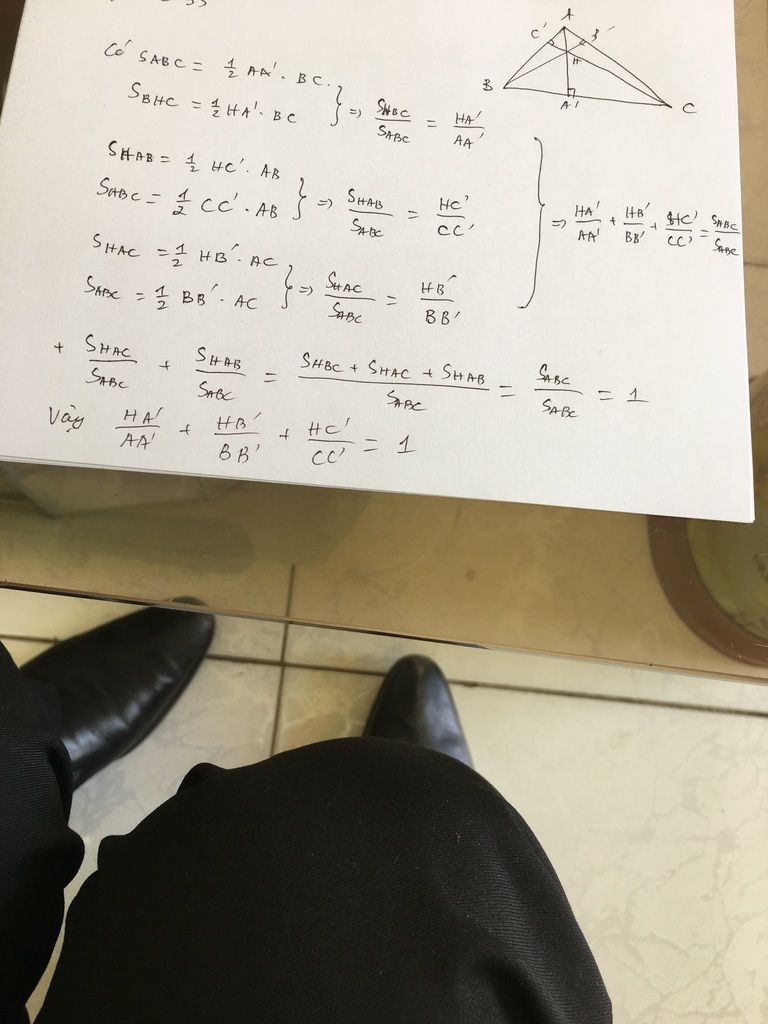 Có S_ABC = 1/2 AA' . BC.
S_BHC = 1/2 HA' . BC } => S_HBC/S_ABC = HA'/AA'
S_HAB = 1/2 HC' . AB
S_ABC = 1/2 CC' . AB } => S_HAB/S_ABC = HC'/CC'
S_HAC = 1/2 HB' . AC
S_ABC = 1/2 BB' . AC } => S_HAC/S_ABC = HB'/BB'
} => HA'/AA' + HB'/BB' + HC'/CC' = S_HBC/S_ABC
+ S_HAC/S_ABC + S_HAB/S_ABC = (S_HBC + S_HAC + S_HAB)/S_ABC = S_ABC/S_ABC = 1
Vậy HA'/AA' + HB'/BB' + HC'/CC' = 1
A
C' B'
H
B
A' C